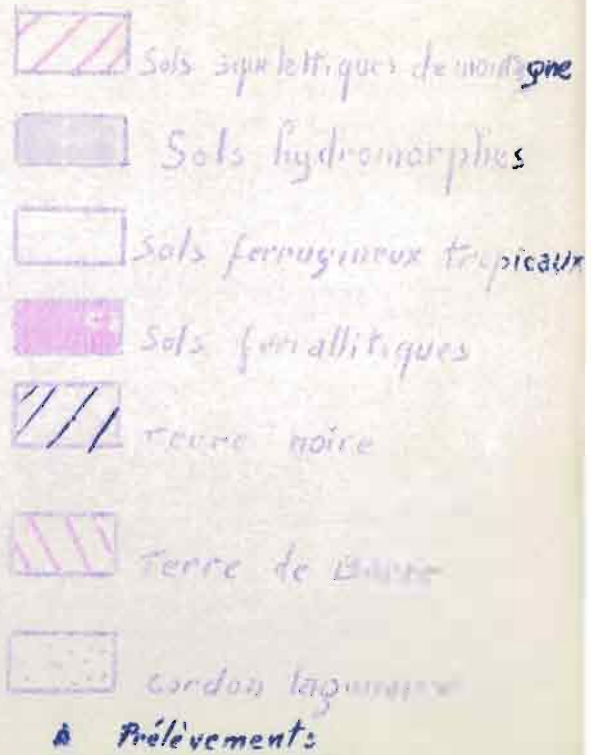 Sols squelettiques de montagne
Sols hydromorphes
Sols ferrugineux tropicaux
Sols ferrallitiques
Terre noire
Terre de Barre
cordon lagunaire
Prélèvements